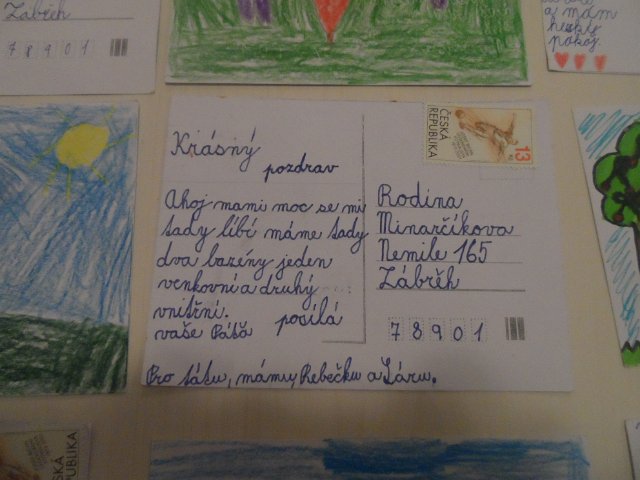 Zábřeh
78901
a mám
hezký
pokoj.
Krásný
pozdrav
Ahoj mami moc se mi
tady líbí máme tady
dva bazény jeden
venkovní a druhý
vnitřní.
posílá
vaše Páťa
Pro tátu, mámu, Rebečku a Láru.
ČESKÁ
REPUBLIKA
13
Kč
Rodina
Minarčíkova
Nemile 165
Zábřěh
78901
ČESKÁ
REPUBLIKA